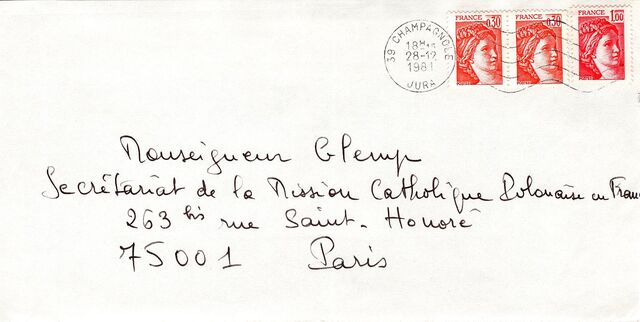 39 CHAMPAGNOLE
18H
28-12
1981
JURA
FRANCE 0,30
FRANCE 0,30
FRANCE 1,00
POSTES
POSTES
POSTES
Monseigneur Glemp
Secrétariat de la Mission Catholique Polonaise en Fran
263 bis rue Saint-Honoré
75001 Paris